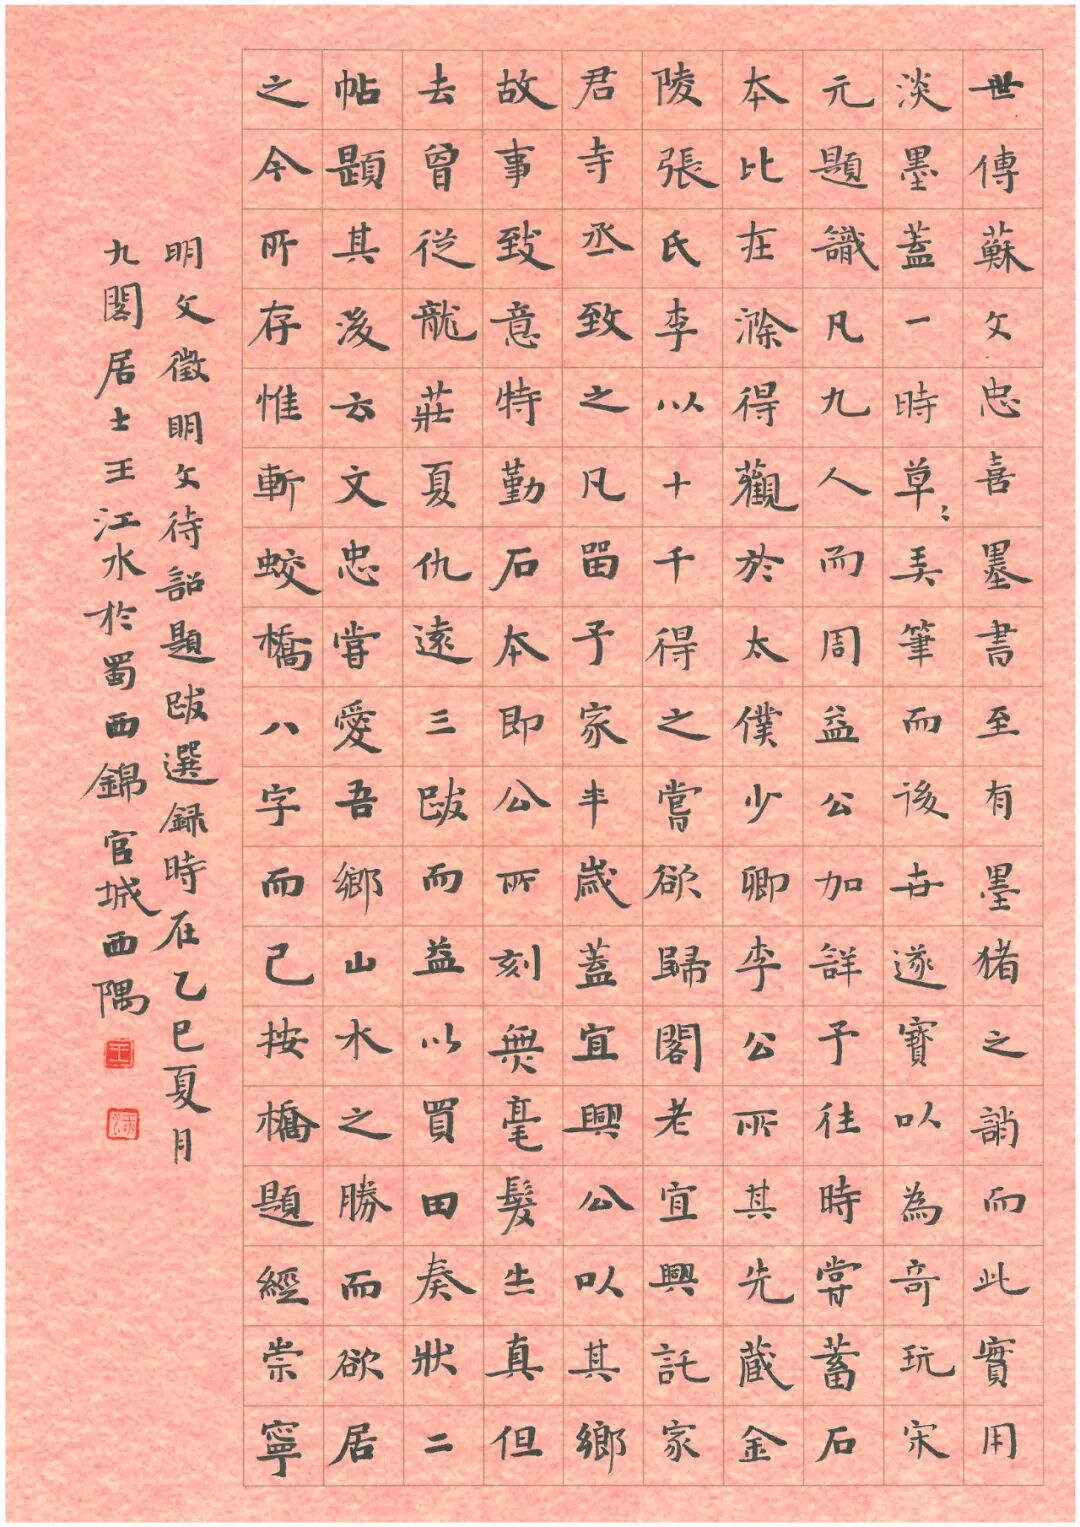 世傳蘇文忠喜墨書至有墨猪之誚而此實用
淡墨蓋一時草〻弄筆而後世遂寶以為奇玩宋
元題識凡九人而周益公加詳予往時嘗蓄石
本比在滁得觀於太僕少卿李公所其先藏金
陵張氏李以十千得之嘗欲歸閣老宜興託家
君寺丞致之凡留予家半歲蓋宜興公以其鄉
故事致意特勤石本即公所刻無毫髮出真但
去曾從龍莊夏仇遠三跋而益以買田奏狀二
帖題其後云文忠嘗愛吾鄉山水之勝而欲居
之今所存惟斬蛟橋八字而已按橋題經崇寧
明文徵明文待詔題跋選録時在乙巳夏月
九閣居士王江水於蜀西錦官城西隅